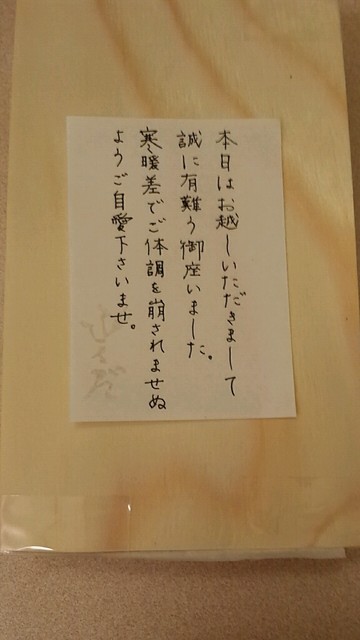 本日はお越しいただきまして
誠に有難う御座いました。
寒暖差でご体調を崩されませぬ
ようご自愛下さいませ。